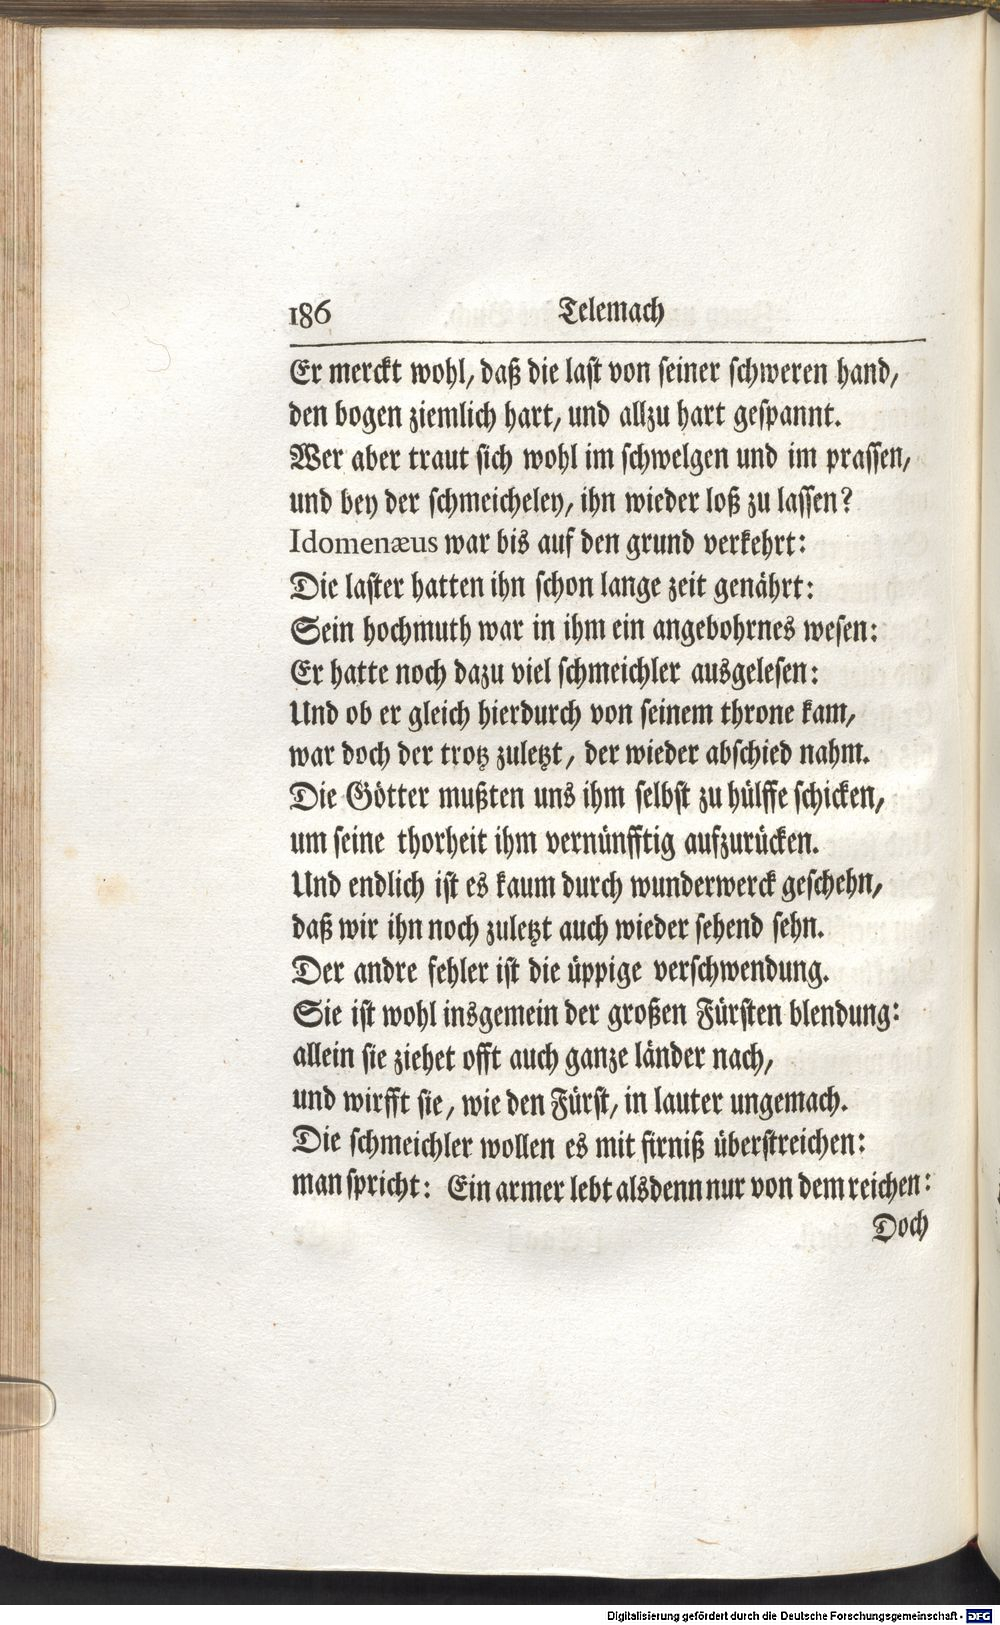 186 Telemach
Er merckt wohl, daß die last von seiner schweren hand,
den bogen ziemlich hart, und allzu hart gespannt.
Wer aber traut sich wohl im schwelgen und im prassen,
und bey der schmeicheley, ihn wieder loß zu lassen?
Idomenæus war bis auf den grund verkehrt:
Die laster hatten ihn schon lange zeit genährt:
Sein hochmuth war in ihm ein angebohrnes wesen:
Er hatte noch dazu viel schmeichler ausgelesen:
Und ob er gleich hierdurch von seinem throne kam,
war doch der trotz zuletzt, der wieder abschied nahm.
Die Götter mußten uns ihm selbst zu hülffe schicken,
um seine thorheit ihm vernünfftig aufzurücken.
Und endlich ist es kaum durch wunderwerck geschehn,
daß wir ihn noch zuletzt auch wieder sehend sehn.
Der andre fehler ist die üppige verschwendung.
Sie ist wohl insgemein der großen Fürsten blendung:
allein sie ziehet offt auch ganze länder nach,
und wirfft sie, wie den Fürst, in lauter ungemach.
Die schmeichler wollen es mit firniß überstreichen:
man spricht: Ein armer lebt alsdenn nur von dem reichen:
Doch
Digitalisierung gefördert durch die Deutsche Forschungsgemeinschaft - DFG